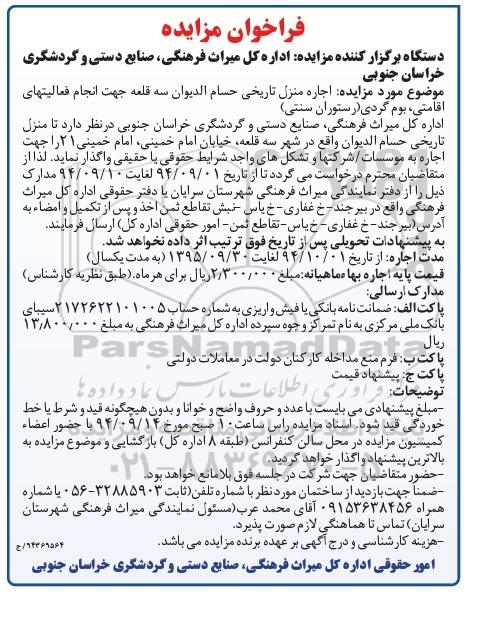 فراخوان مزایده
دستگاه برگزار کننده مزایده: اداره کل میراث فرهنگی، صنایع دستی و گردشگری
خراسان جنوبی
موضوع مورد مزایده: اجاره منزل تاریخی حسام الدیوان سه قلعه جهت انجام فعالیتهای
اقامتی، بوم گردی(رستوران سنتی)
اداره کل میراث فرهنگی، صنایع دستی و گردشگری خراسان جنوبی درنظر دارد تا منزل
تاریخی حسام الدیوان واقع در شهر سه قلعه، خیابان امام خمینی، امام خمینی۲۱را جهت
اجاره به موسسات/شرکتها و تشکل های واجد شرایط حقوقی یا حقیقی واگذار نماید. لذا از
متقاضیان محترم درخواست می گردد تا از تاریخ ۹۴/۰۹/۰۱ لغایت ۹۴/۰۹/۱۰ مدارک
ذیل را از دفتر نمایندگی میراث فرهنگی شهرستان سرایان یا دفتر حقوقی اداره کل میراث
فرهنگی واقع در بیرجند-خ غفاری-خ یاس-نبش تقاطع ثمن اخذ و پس از تکمیل و امضاء به
آدرس(بیرجند-خ غفاری-خ یاس-تقاطع ثمن- امور حقوقی اداره کل) ارسال فرمایند.
به پیشنهادات تحویلی پس از تاریخ فوق ترتیب اثر داده نخواهد شد.
مدت اجاره: از تاریخ ۹۴/۱۰/۰۱ لغایت ۱۳۹۵/۰۹/۳۰ (به مدت یکسال)
قیمت پایه اجاره بهاء ماهیانه: مبلغ ۲/۳۰۰/۰۰۰ریال برای هرماه. (طبق نظریه کارشناس)
مدارک ارسالی:
پاکت الف: ضمانت نامه بانکی یا فیش واریزی به شماره حساب ۲۱۷۲۶۲۲۱۰۱۰۰۵سیبای
بانک ملی مرکزی به نام تمرکز وجوه سپرده اداره کل میراث فرهنگی به مبلغ ۱۳/۸۰۰/۰۰۰
ریال
پاکت ب: فرم منع مداخله کارکنان دولت در معاملات دولتی
پاکت ج: پیشنهاد قیمت
توضیحات:
-مبلغ پیشنهادی می بایست با عدد و حروف واضح و خوانا و بدون هیچگونه قید و شرط یا خط
خوردگی قید شود. اسناد مزایده راس ساعت۱۰ صبح مورخ ۹۴/۰۹/۱۴ با حضور اعضاء
کمیسیون مزایده در محل سالن کنفرانس (طبقه ۸ اداره کل) بازگشایی و موضوع مزایده به
بالاترین پیشنهاد واگذار خواهد گردید.
-حضور متقاضیان جهت شرکت در جلسه فوق بلامانع خواهد بود.
-ضمناً جهت بازدید از ساختمان مورد نظر با شماره تلفن(ثابت ۳۲۸۸۵۹۰۳-۰۵۶ یا شماره
همراه ۰۹۱۵۳۶۳۸۴۵۶ آقای محمد عرب(مسئول نمایندگی میراث فرهنگی شهرستان
سرایان) تماس تا هماهنگی لازم صورت پذیرد.
-هزینه کارشناسی و درج آگهی بر عهده برنده مزایده می باشد.
۹۴۳۶۹۵۶۴/ج
امور حقوقی اداره کل میراث فرهنگی، صنایع دستی و گردشگری خراسان جنوبی
ParsNamadData
۰۲۱-۸۸۳۴۹۶۷۰-۵